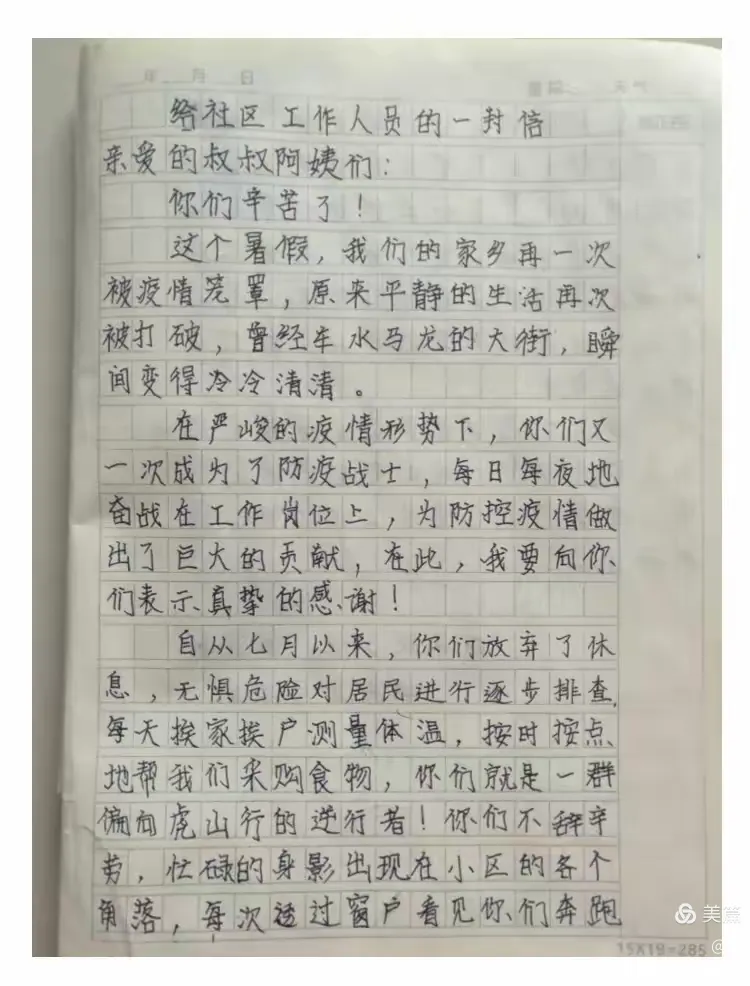 年 月 日
给社区工作人员的一封信
亲爱的叔叔阿姨们：
你们辛苦了！
这个暑假，我们的家乡再一次
被疫情笼罩，原来平静的生活再次
被打破，曾经车水马龙的大街，瞬
间变得冷冷清清。
在严峻的疫情形势下，你们又
一次成为了防疫战士，每日每夜地
奋战在工作岗位上，为防控疫情做
出了巨大的贡献，在此，我要向你
们表示真挚的感谢！
自从七月以来，你们放弃了休
息，无惧危险对居民进行逐步排查，
每天挨家挨户测量体温，按时按点
地帮我们采购食物，你们就是一群
偏向虎山行的逆行者！你们不辞辛
劳，忙碌的身影出现在小区的各个
角落，每次透过窗户看见你们奔跑
美篇
15X19=285
@